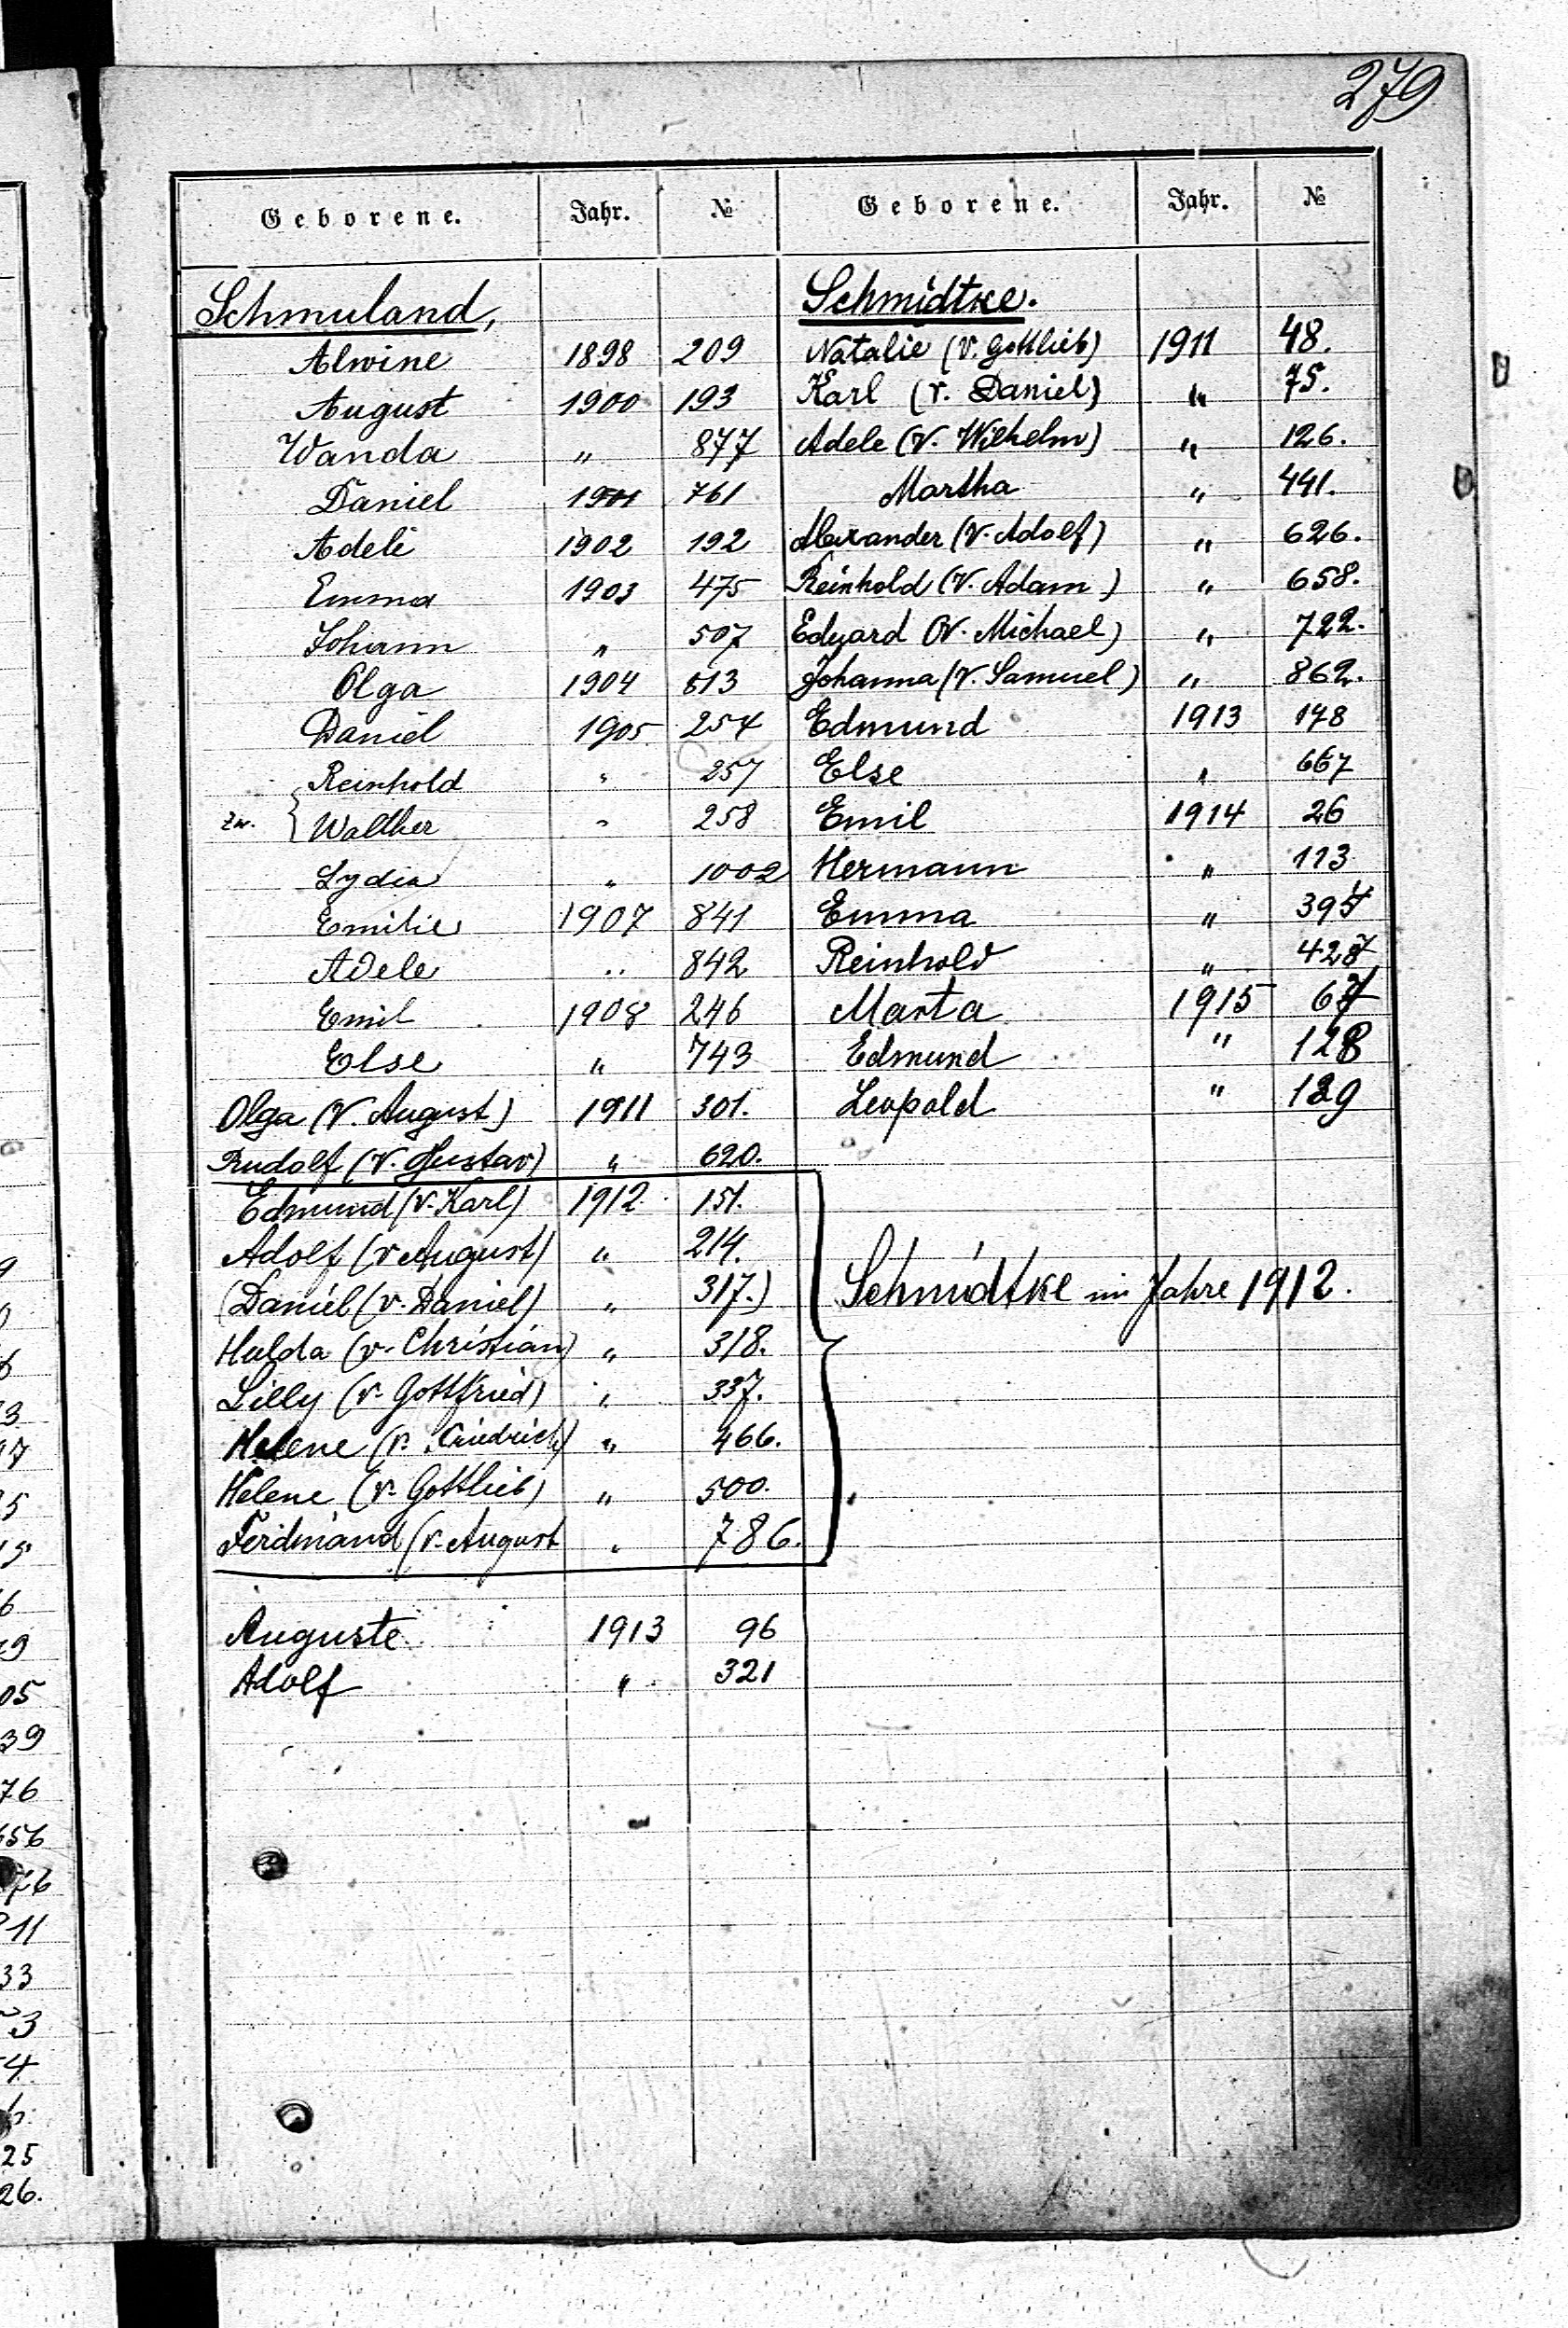 279
Geborene. Jahr. № Geborene. Jahr. №
Schmuland,
Alwine 1898 209
August 1900 193
Wanda " 877
Daniel 1901 761
Adele 1902 192
Emma 1903 475
Johann " 507
Olga 1904 613
Daniel 1905 254
Reinhold " 257
Zw. { Walther " 258
Lydia " 1002
Emilie 1907 841
Adele " 842
Emil 1908 246
Else " 743
Olga (v. August) 1911 301.
Rudolf (v. Gustav) " 620.
Edmund (v. Karl) 1912 151.
Adolf (v August) " 214.
(Daniel (v. Daniel) " 317.)
Hulda (v. Christian) " 318.
Lilly (v. Gottfried) " 337.
Helene (v. Friedrich) " 466.
Helene (v. Gottlieb) " 500.
Ferdinand (v. August " 786.
Auguste 1913 96
Adolf " 321
Schmidtke.
Natalie (v. Gottlieb) 1911 48.
Karl (v. Daniel) " 75.
Adele (v. Wilhelm) " 126.
Martha " 441.
Alexander (v. Adolf) " 626.
Reinhold (v. Adam) " 658.
Eduard (v. Michael) " 722.
Johanna (v. Samuel) " 862.
Edmund 1913 178
Else " 667
Emil 1914 26
Hermann " 113
Emma "
Reinhold "
Marta 1915
Edmund " 128
Leopold " 129
Schmidtke im Jahre 1912.